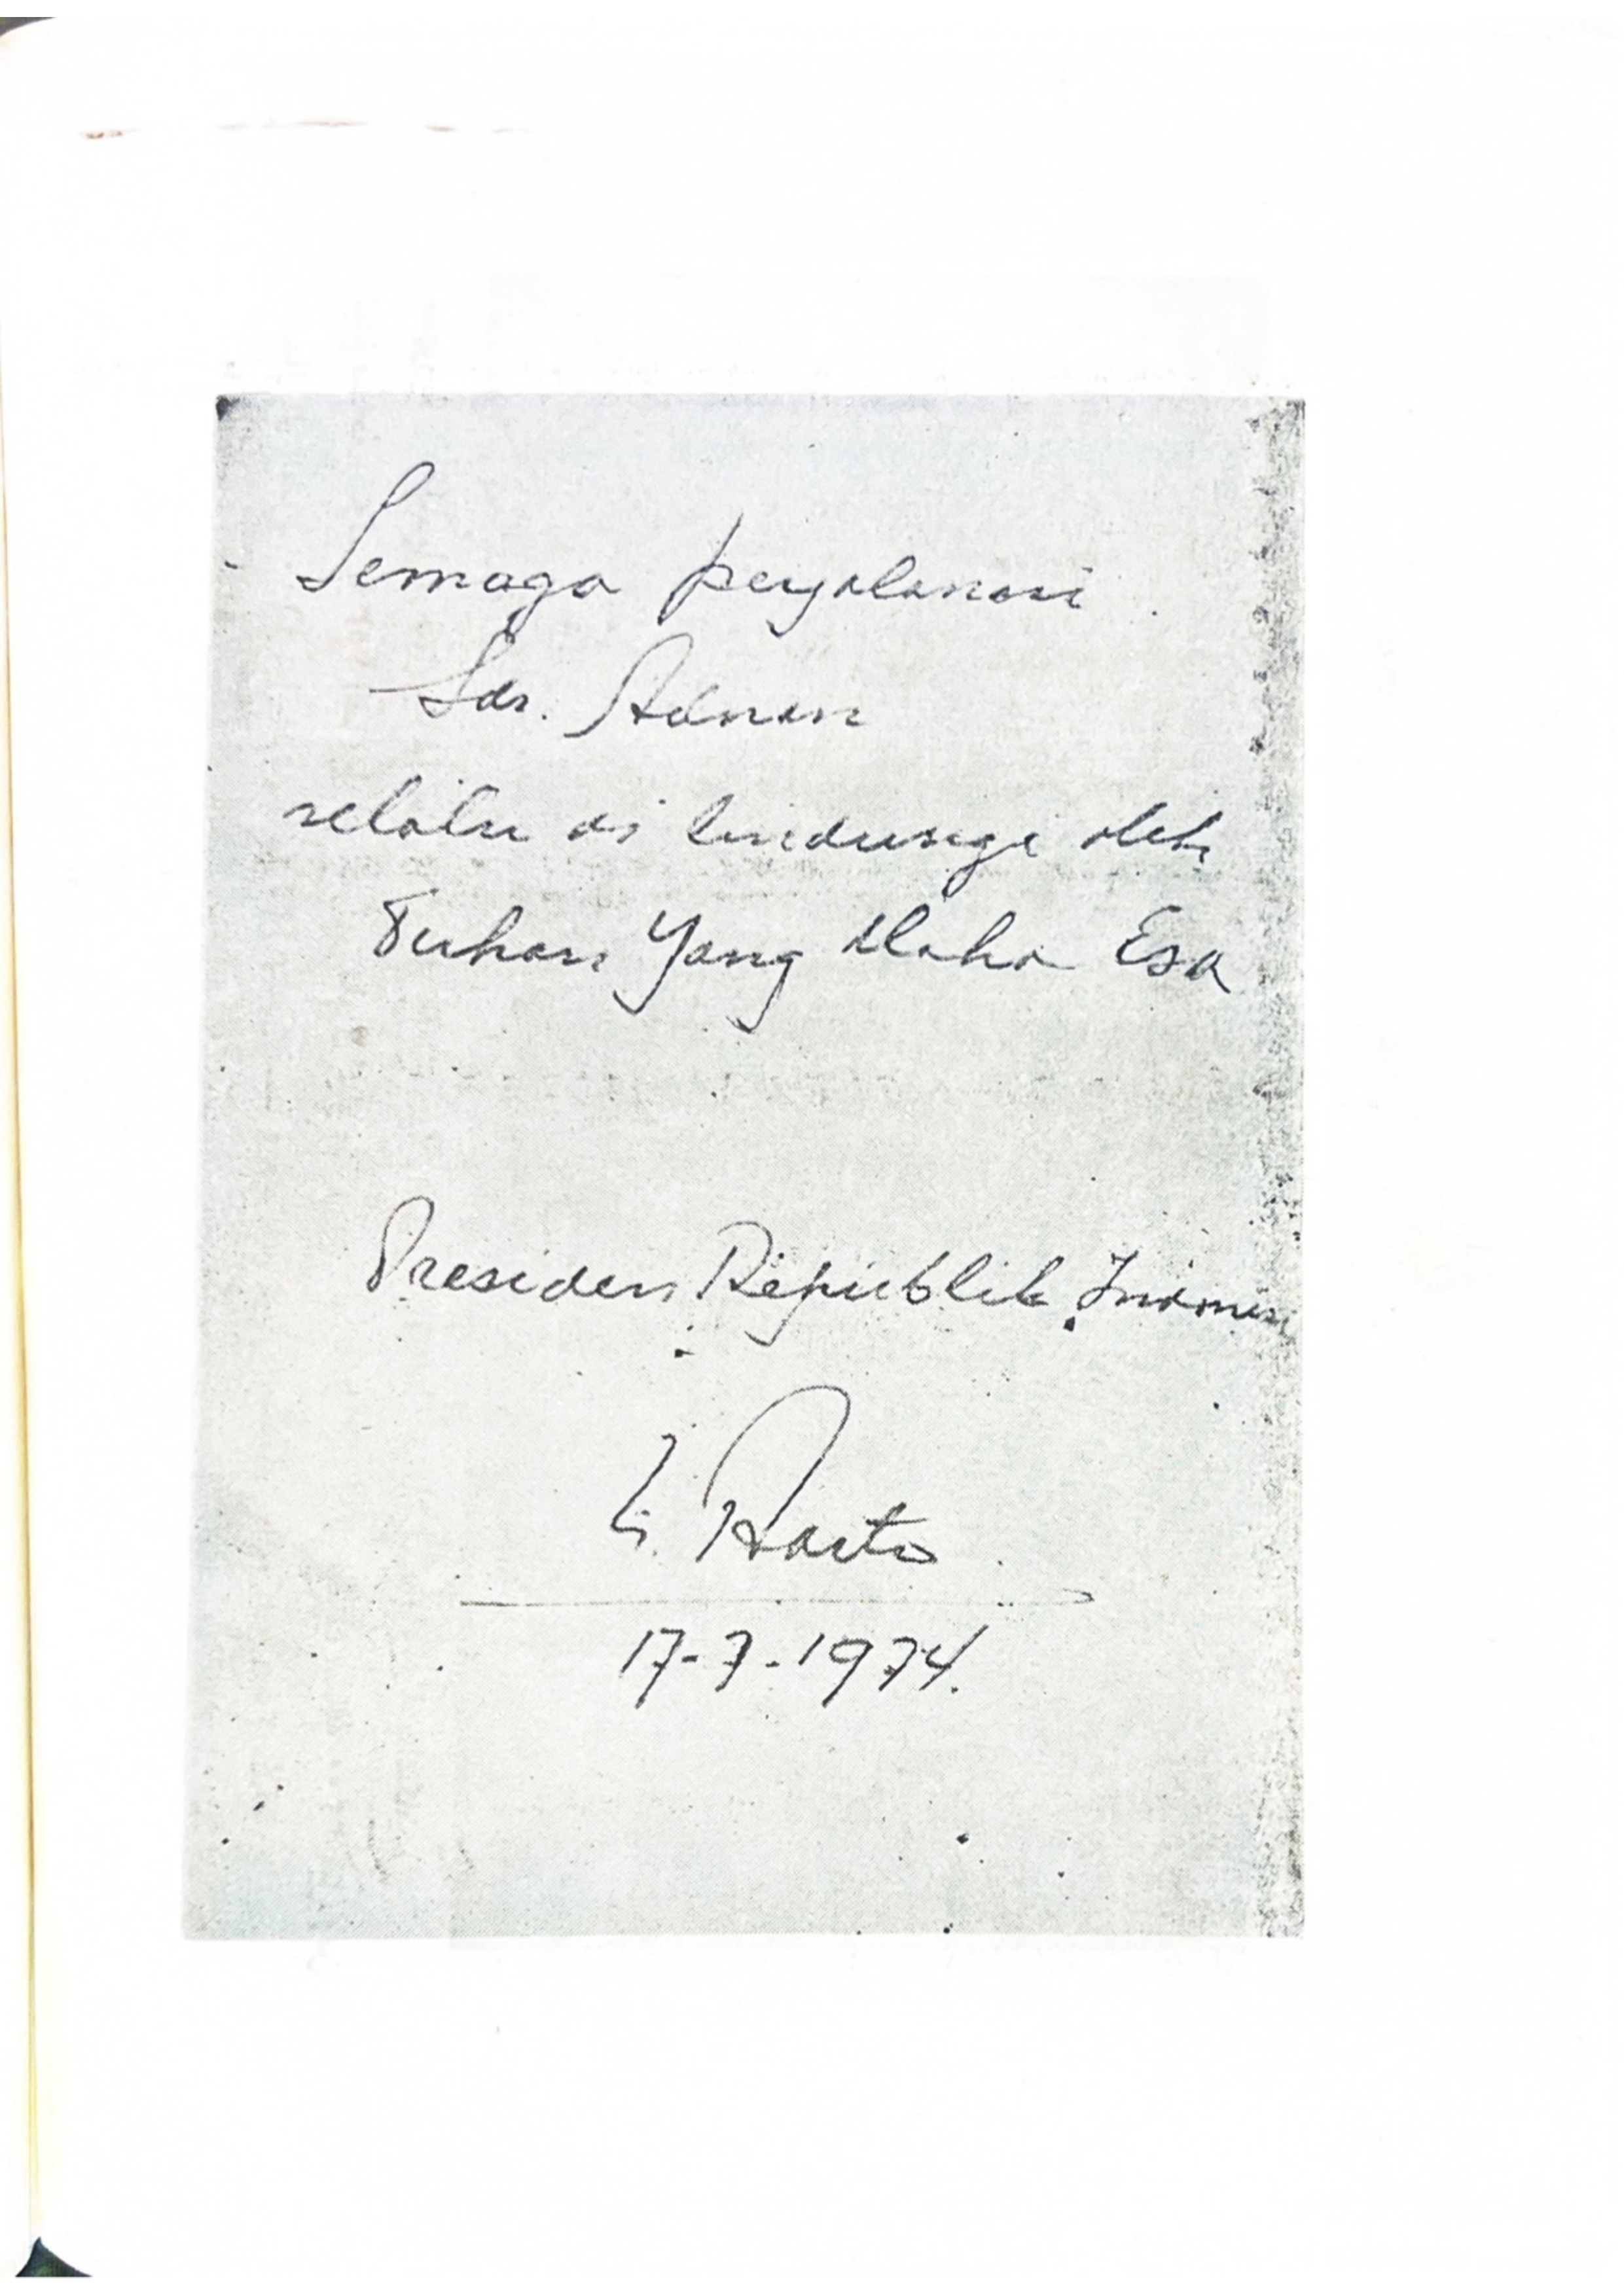 Semoga perjalanan
Sdr. Adnan
selalu di lindungi oleh
Tuhan Yang Maha Esa
Presiden Republik Indonesi
17-7-1974.